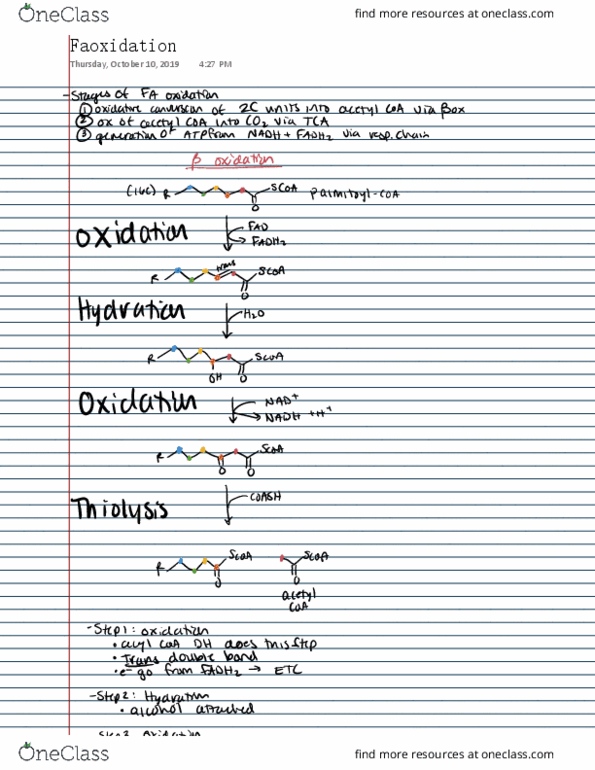 OneClass
find more resources at oneclass.com
Faoxidation
Thursday, October 10, 2019 4:27 PM
-Stages of FA oxidation
① oxidative conversion of 2C units into acetyl CoA via βox
② ox of acetyl COA into CO2 via TCA
③ generation of ATP from NADH + FADH2 via resp. chain
β oxidation
(16C) R SCoA Palmitoyl-COA
O
oxidation
FAD
FADH2
trans
R SCOA
O
Hydration
H2O
R SCOA
OH O
Oxidation
NAD+
NADH +H+
R SCOA
O O
Thiolysis
COASH
R SCOA SCOA
O O
acetyl
COA
-Step 1: oxidation
• acyl COA DH does this step
• Trans double bond
• e- go from FADH2 → ETC
-Step 2: Hydration
• alcohol attached
Step 3 Oxidation
OneClass
find more resources at oneclass.com